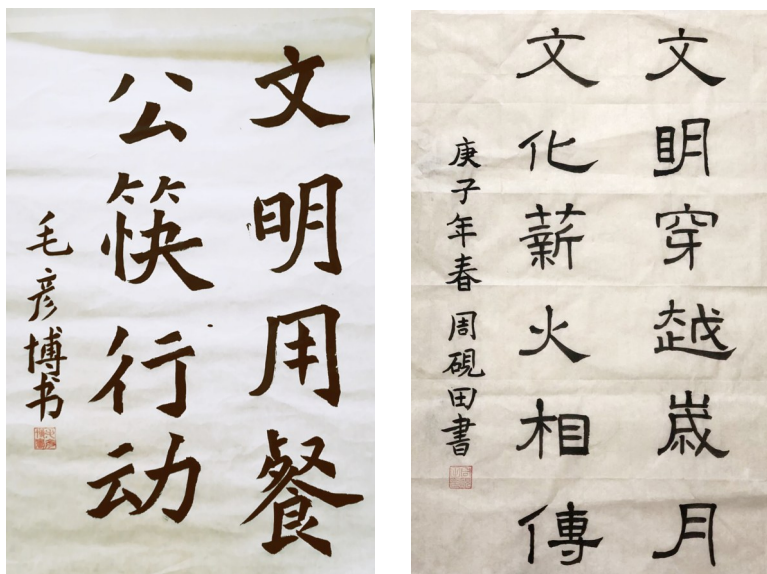 文明用餐
公筷行动
毛彦博书
文明穿越歲月
文化薪火相傳
庚子年春 周硯田書